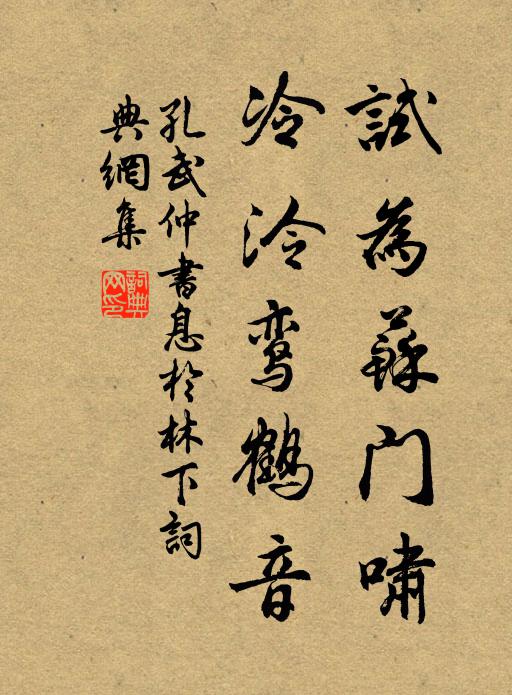 試為蘇門嘯
冷泠鸾鶴音
孔武仲書息於林下詞
典網集
詞典网印